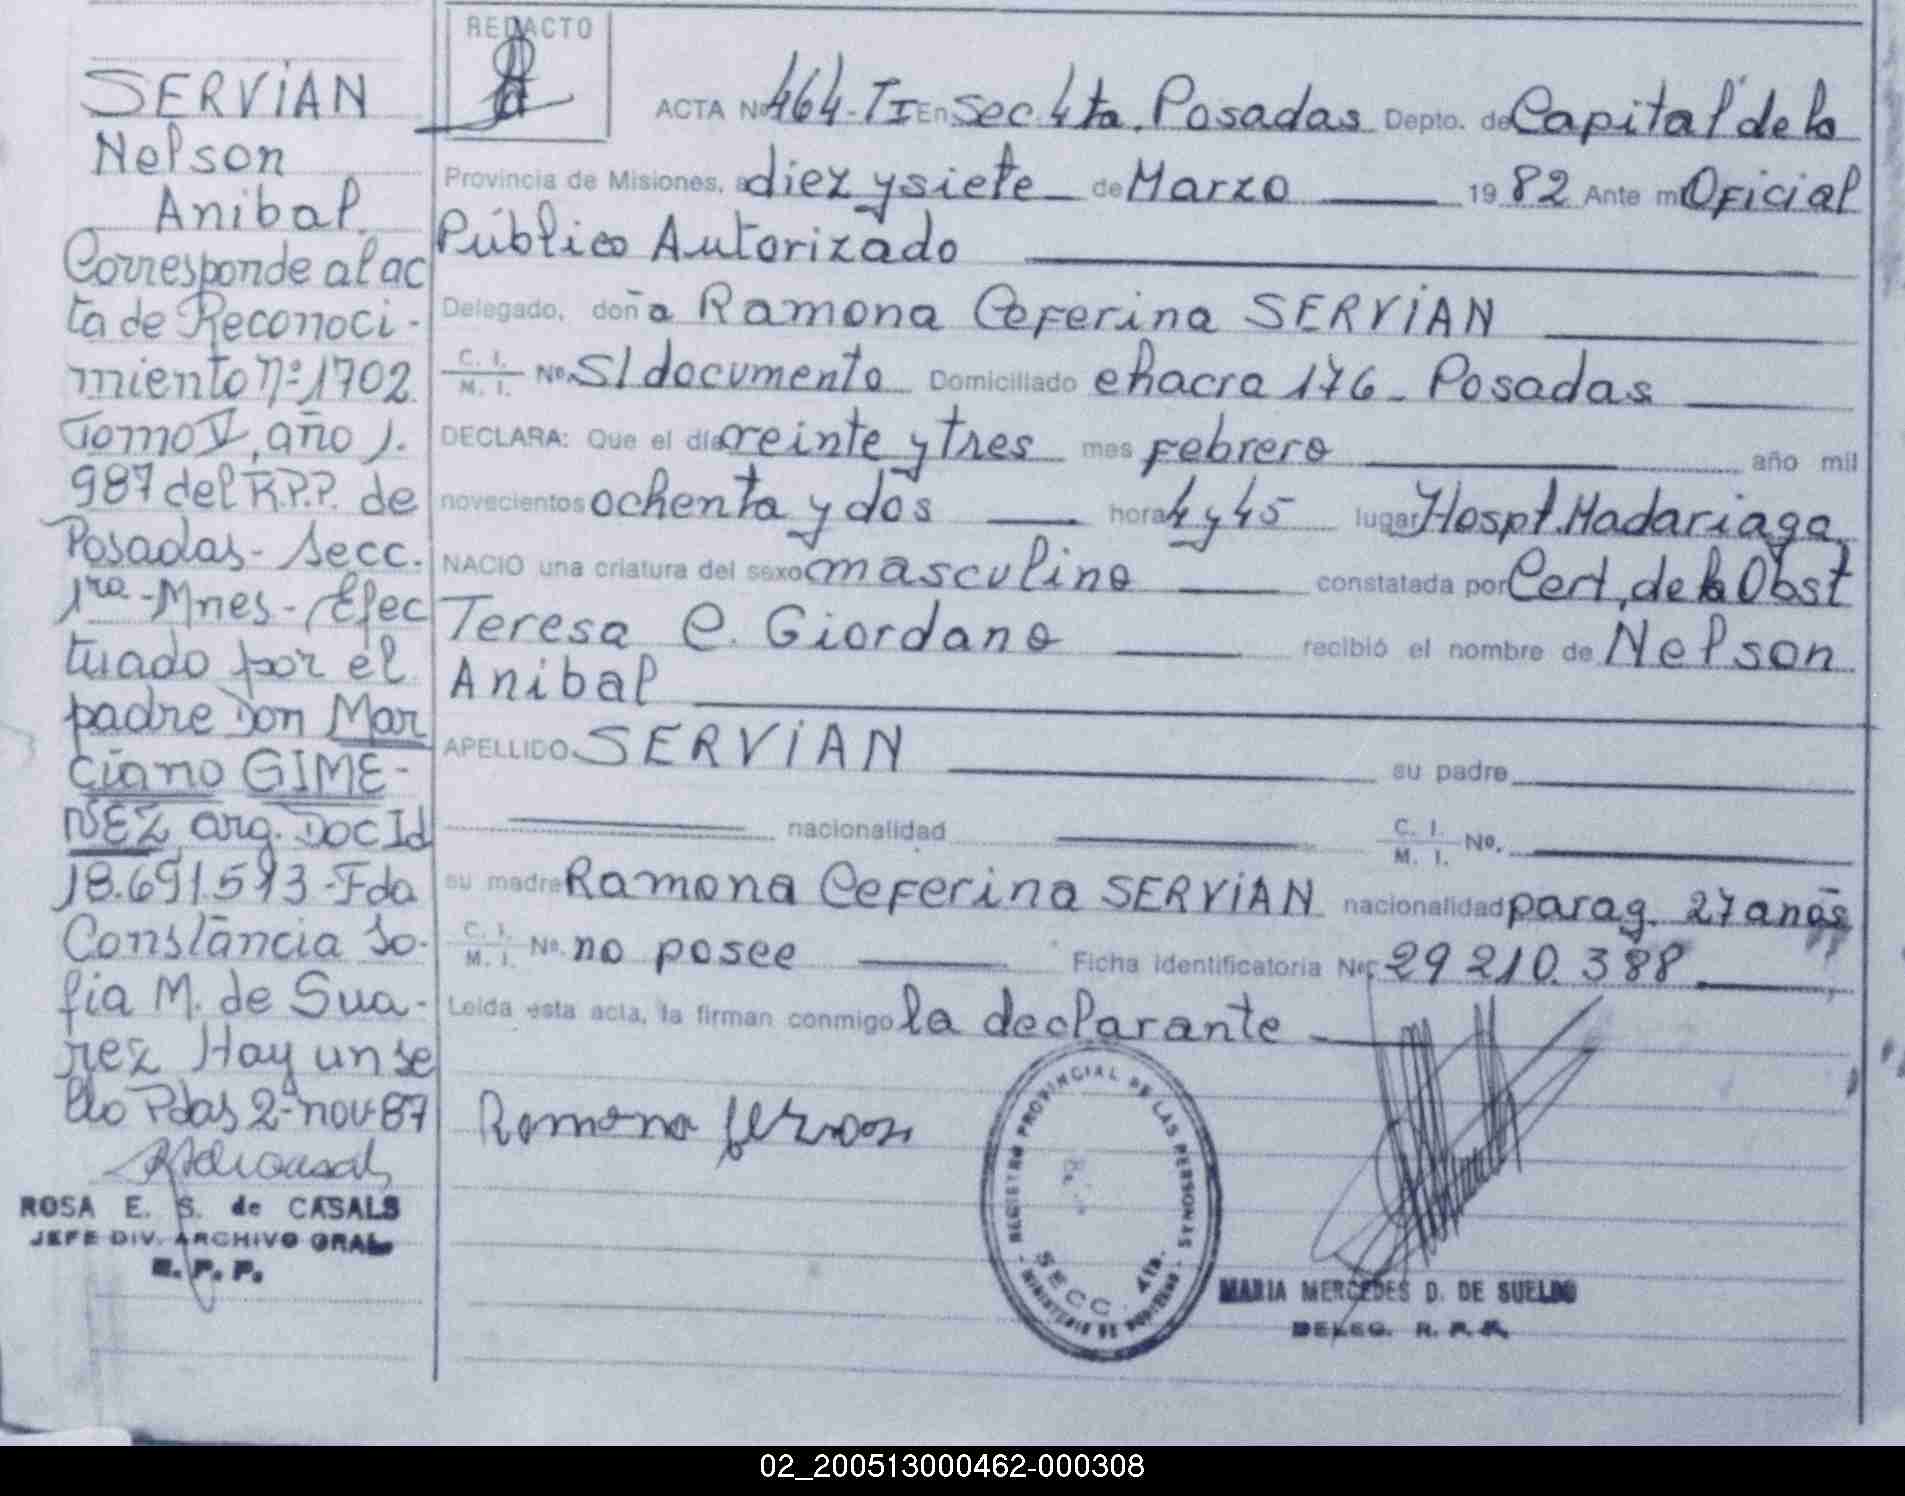 SERVIAN
Nelson
Anibal.
Corresponde al ac
ta de Reconoci-
miento Nº 1702
Tomo V, año 1.
987 del R.P.P. de
Posadas- Secc.
1ra-Mnes-Efec
tuado por el
padre Don Mar
ciano GIME-
NEZ arg. Doc Id
18.691.593-Fda
Constancia So-
fia M. de Sua-
rez Hay un se
llo Pdas 2-nov-87
ROSA E. S. de CASALS
JEFE DIV. ARCHIVO GRAL.
R. P. P.
REDACTO
ACTA Nº 464-TI En Sec 4ta. Posadas Depto. de Capital de la
Provincia de Misiones, a diez y siete de Marzo 19 82 Ante mi Oficial
Público Autorizado
Delegado, doña Ramona Ceferina SERVIAN
C. I. / M. I. Nº. S/documento Domiciliado chacra 176- Posadas
DECLARA: Que el día veinte y tres mes febrero año mil
novecientos ochenta y dos hora 4 y 45 lugar Hospt. Madariaga
NACIO una criatura del sexo masculino constatada por Cert, de la Obst
Teresa C. Giordano recibió el nombre de Nelson
Anibal
APELLIDO SERVIAN su padre
nacionalidad C. I. / M. I. Nº.
su madre Ramona Ceferina SERVIAN nacionalidad parag. 27 años
C. I. / M. I. Nº. no posee Ficha identificatoria Nº 29 210.388
Leída esta acta, la firman conmigo la declarante
Ramona Servian
REGISTRO PROVINCIAL DE LAS PERSONAS
SECC. 4ta.
MINISTERIO DE GOBIERNO
MARIA MERCEDES D. DE SUELDO
DELEG. R. P. P.
02_200513000462-000308